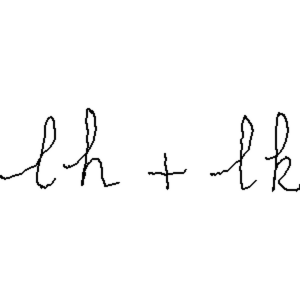 lh + lk